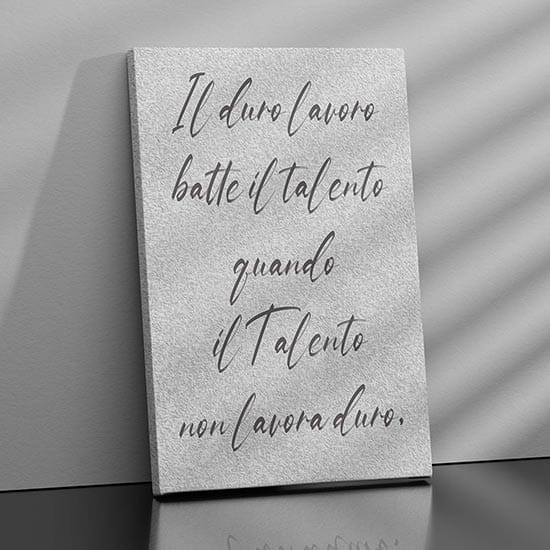 Il duro lavoro
batte il talento
quando
il Talento
non lavora duro.